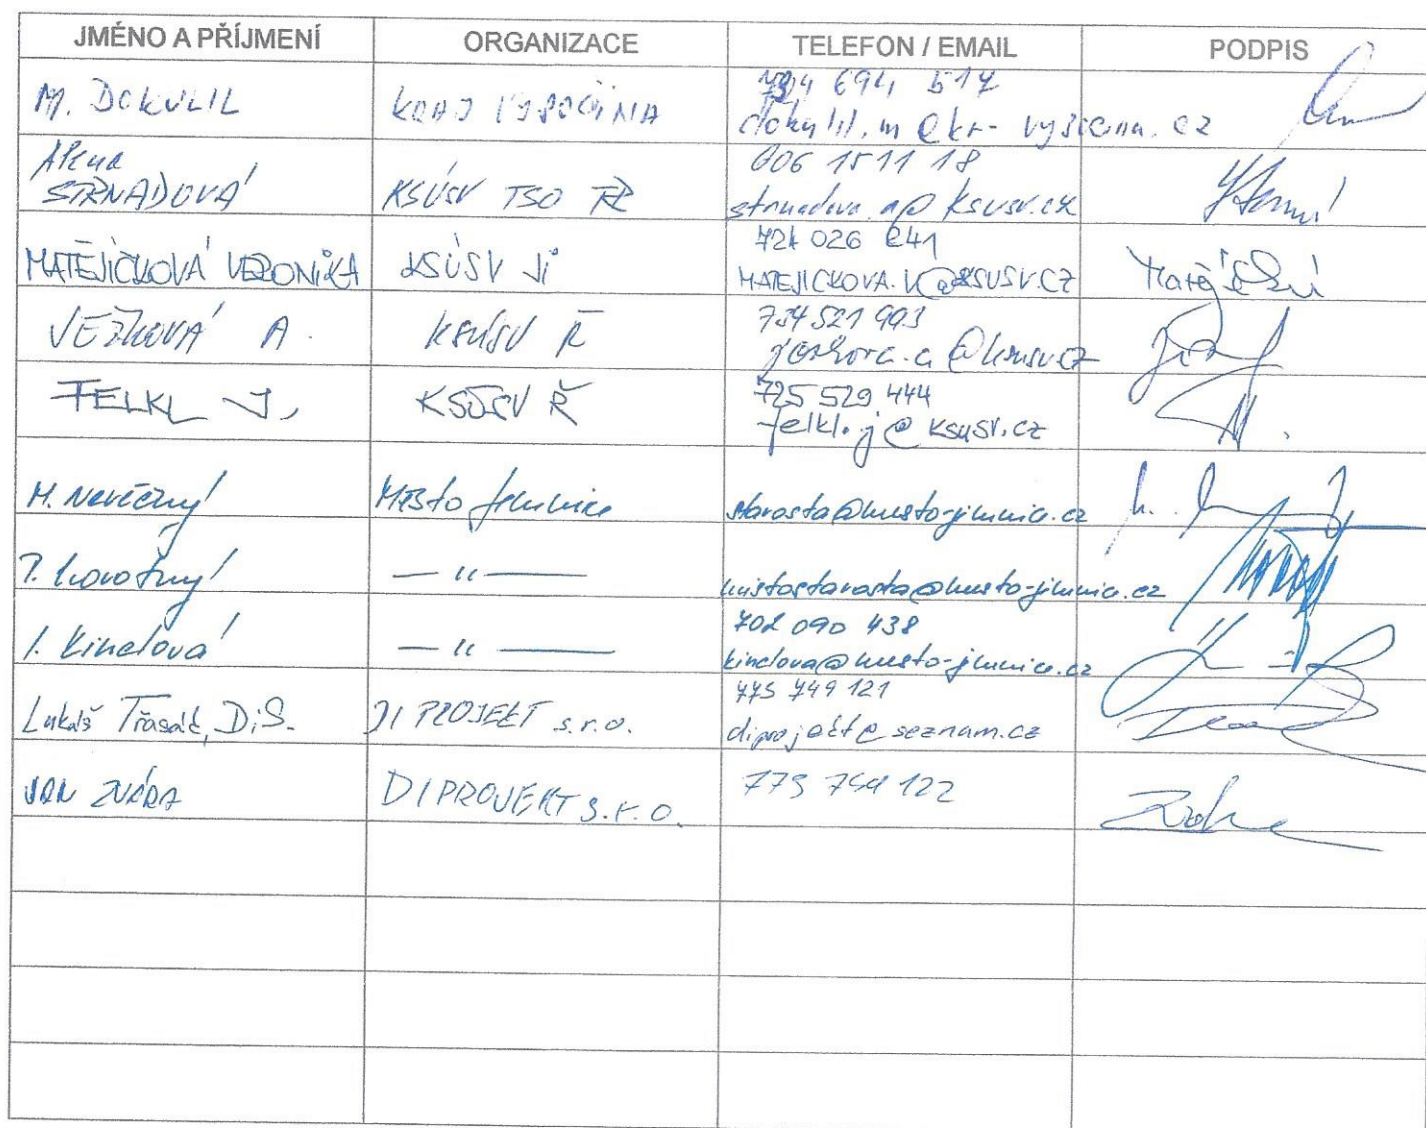 JMÉNO A PŘÍJMENÍ ORGANIZACE TELEFON / EMAIL PODPIS
M. DOKULIL KRAJ VYSOČINA 694 517
dokulil.m@kr-vysocina.cz
Alena
STRNADOVÁ KSÚSV TSO TŘ 606 15 11 18
strnadova.a@ksusv.cz
MATĚJÍČKOVÁ VERONIKA KSÚSV JI 724 026 241
MATEJICKOVA.V@KSUSV.CZ
A. KSÚSV Ř 734 521 993
FELKL J. KSÚSV Ř 725 529 444
felkl.j@ksusv.cz
M. Nevěčný Město Jemnice starosta@mesto-jemnice.cz
P. Novotný — " — mistostarosta@mesto-jemnice.cz
I. Kinclová — " — 702 090 438
kinclova@mesto-jemnice.cz
Lukáš Třasák, DiS. DI PROJEKT s.r.o. 775 749 121
diprojekt@seznam.cz
JAN ZVÁRA DI PROJEKT s.r.o. 775 749 122